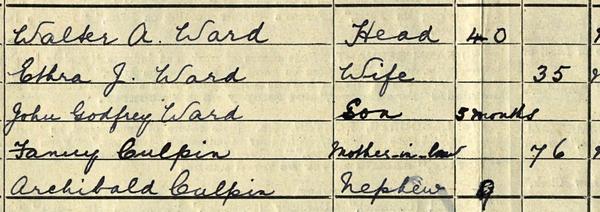 Walter A. Ward Head 40
Ethra J. Ward Wife 35
John Godfrey Ward Son 5 months
Fanny Culpin Mother-in-law 76
Archibald Culpin Nephew 9